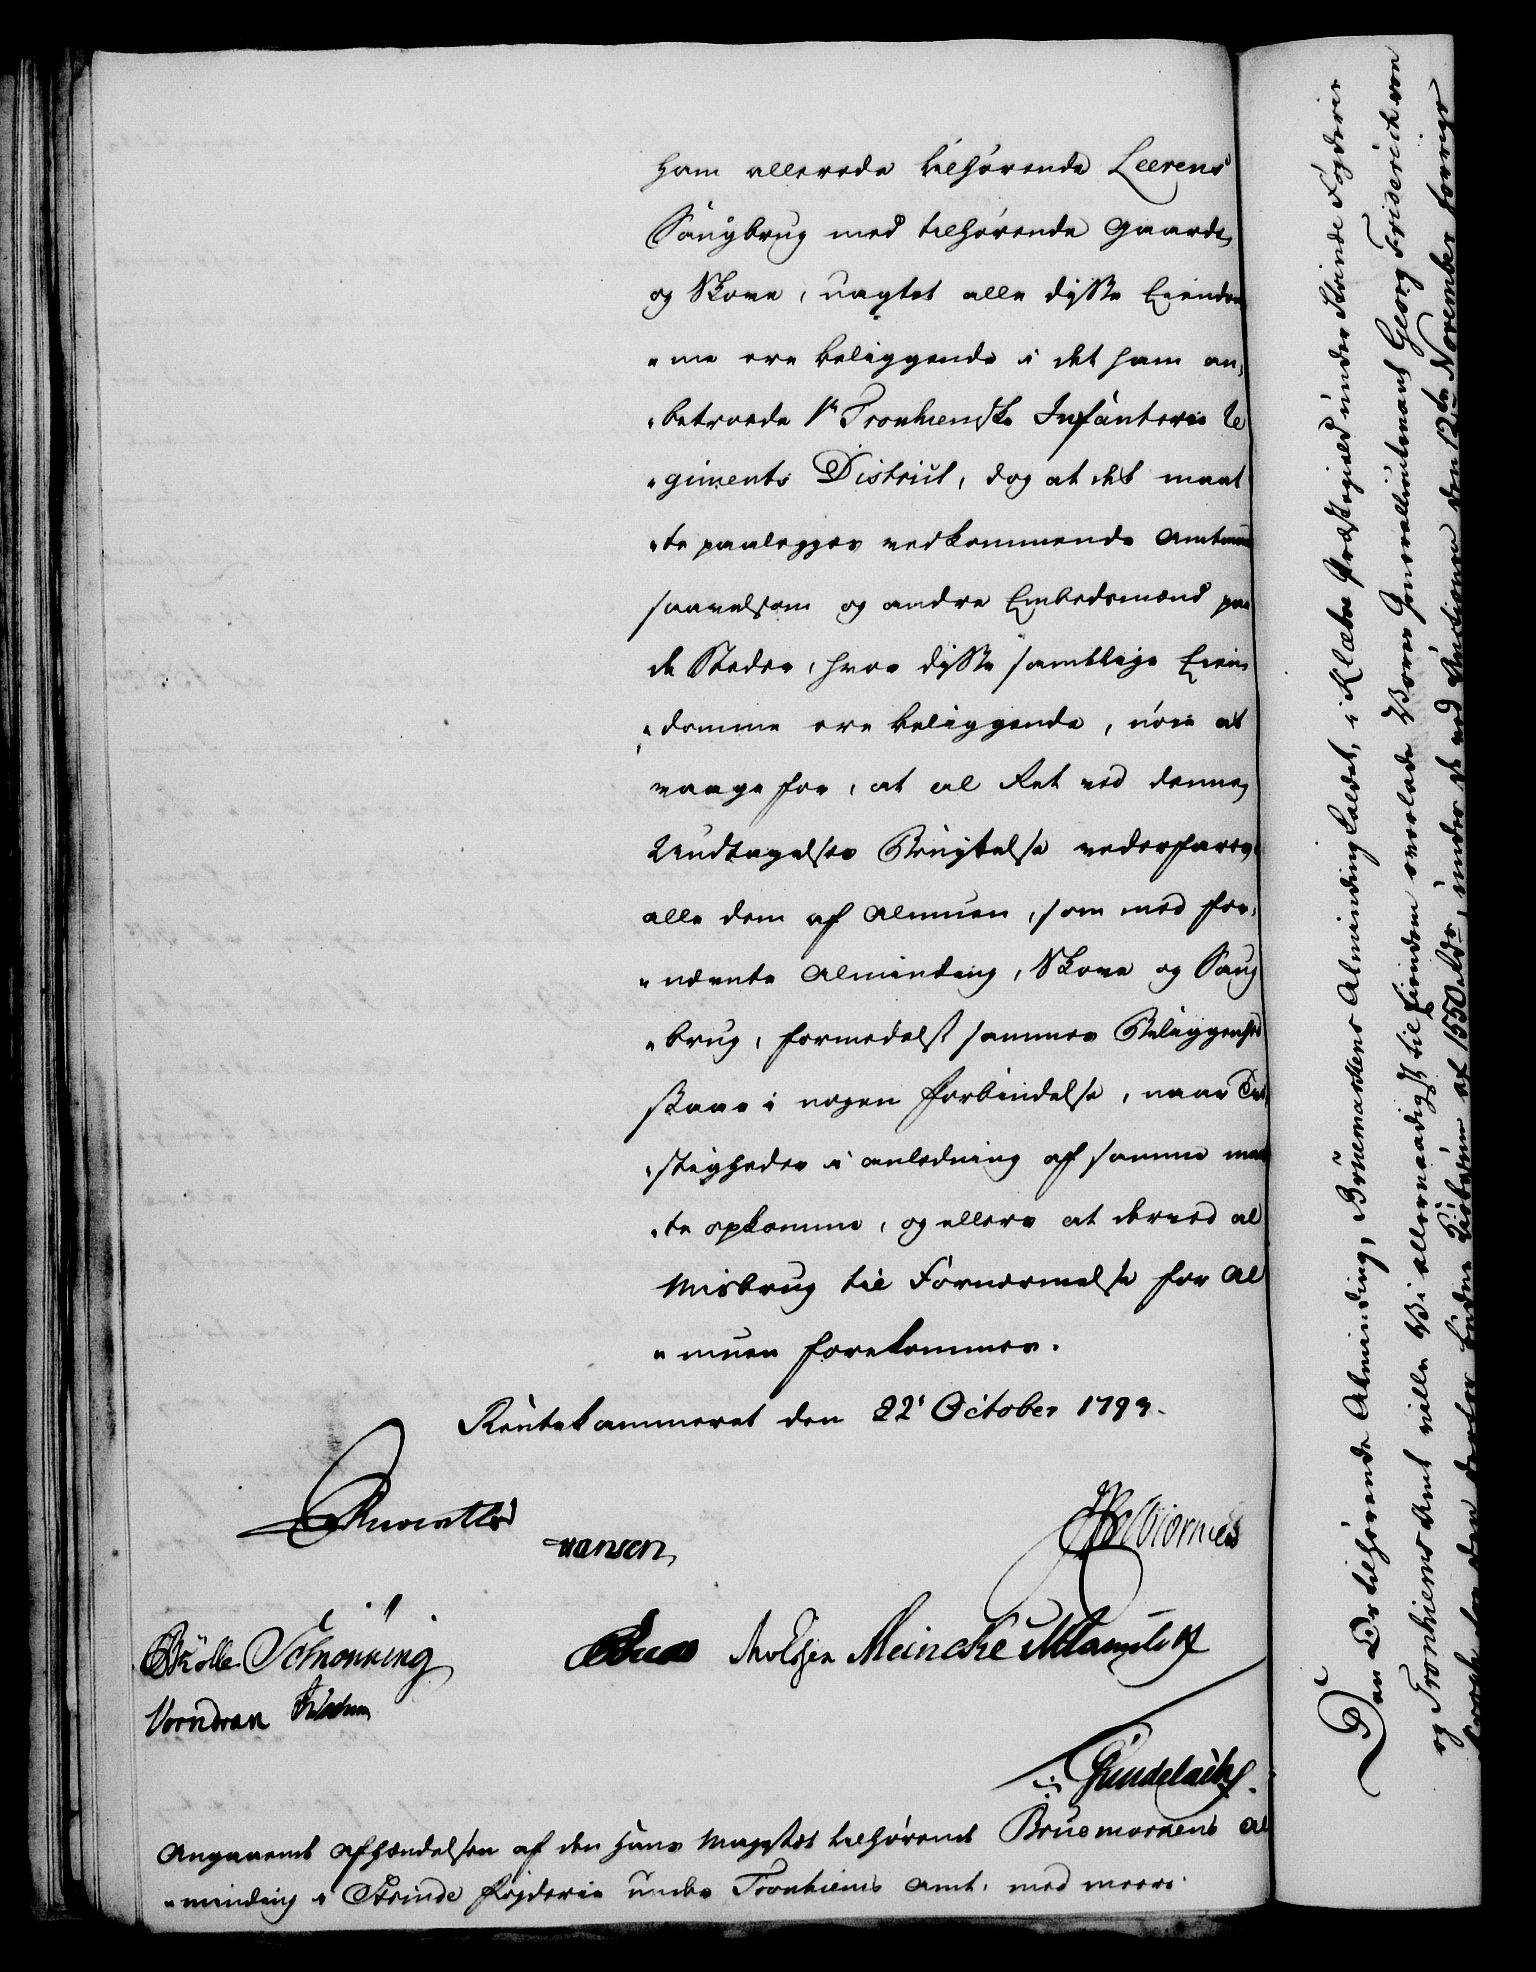 ham allerede tilhørende Leerens
Saugbrug med tilhørende Gaarde
og Skove, uagtet alle disse Eiendom
"me ere beliggende i det ham an"
"betroede 1te Tronhiemske Infanterie Re
"giments District, dog at det maat
"te paalegges vedkommende Amtmand
saavelsom og andre Embedsmænd paa
de Steder, hvor disse samtlige Eien
"domme ere beliggende, nøie at
vaage for, at al Ret ved denne
Undtagelses Benyttelse vederfares
alle dem af Almuen, som med for"
"nævnte Alminding, Skove og Saug
"brug, formedelst sammes Beliggenhed
staae i nogen Forbindelse, naar Tvi
"stigheder i anledning af samme maat
"te opkomme, og ellers at derved al
Misbrug til Fornærmelse for Al
"muen forekommes.
Rentekammeret den 22' October 1793.
Hansen
Schønning
Meincke
Vorndran
Gundelach
Angaaende Afhændelsen af den Hans Majestæt tilhørende Bruemarkens Al
"minding i Strinde Fogderie under Tronhiems Amt, med meere.
Den Os tilhørende Alminding, Bruemarkens Alminding kaldet, i Klæboe Præstegield under Strinde Fogderie
og Tronhiems Amt ville Vi allernaadigst til Eiendom overlade Vores Generallieutenant Georg Friderich von
Krogh for den derfor budne Kiøbesum af 1550 rdr, under de ved Auctionen den 12te November forrige